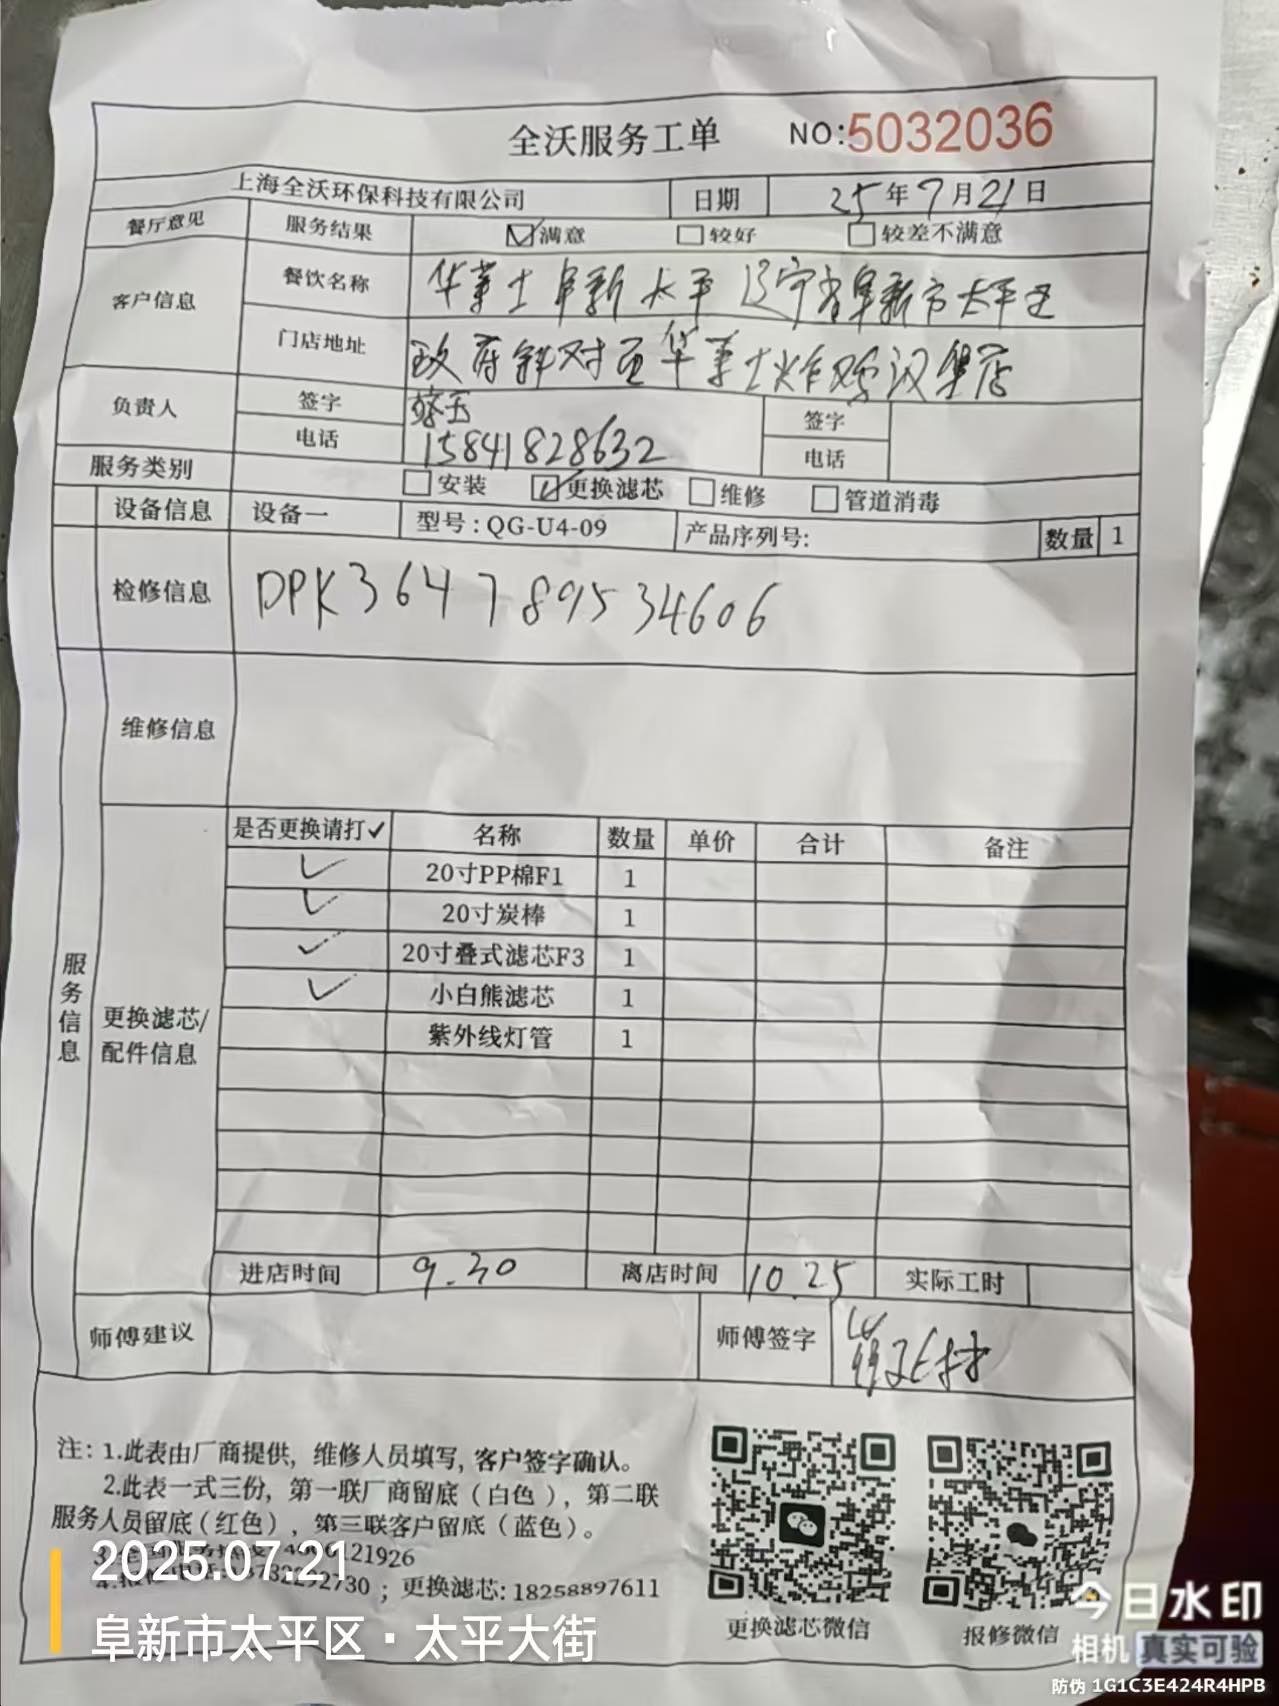 全沃服务工单 NO:5032036
上海全沃环保科技有限公司 日期 25年7月21日
餐厅意见 服务结果 满意 较好 较差不满意
客户信息 餐饮名称 华莱士阜新太平 辽宁省阜新市太平区
门店地址 政府斜对面华莱士炸鸡汉堡店
负责人 签字 签字
电话 15841828632 电话
服务类别 安装 更换滤芯 维修 管道消毒
设备信息 设备一 型号:QG-U4-09 产品序列号: 数量 1
检修信息 DPK364789534606
维修信息
服务信息
更换滤芯/
配件信息
是否更换请打✓ 名称 数量 单价 合计 备注
✓ 20寸PP棉F1 1
✓ 20寸炭棒 1
✓ 20寸叠式滤芯F3 1
✓ 小白熊滤芯 1
紫外线灯管 1
进店时间 9.30 离店时间 10.25 实际工时
师傅建议 师傅签字
注: 1.此表由厂商提供, 维修人员填写, 客户签字确认。
2.此表一式三份, 第一联厂商留底(白色), 第二联
服务人员留底(红色), 第三联客户留底(蓝色)。
更换滤芯: 18258897611
更换滤芯微信 报修微信
2025.07.21
阜新市太平区·太平大街
今日水印
相机 真实可验
防伪 1G1C3E424R4HPB